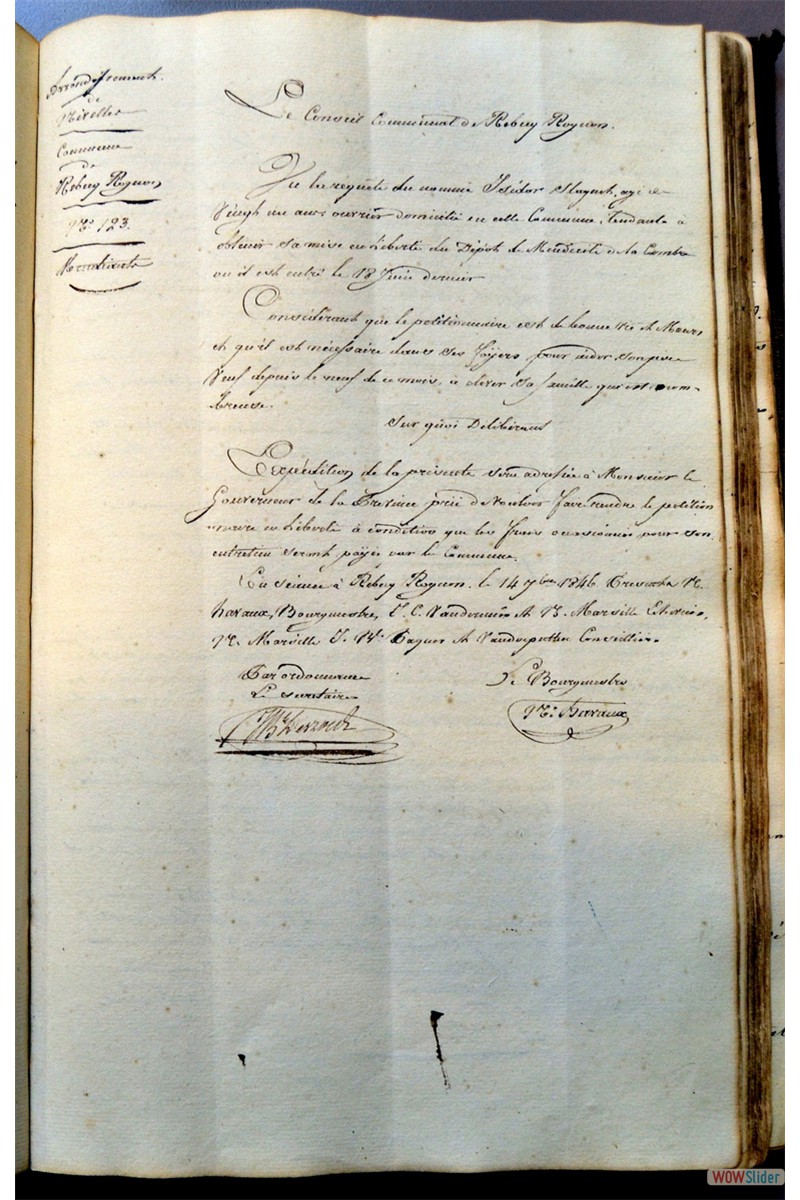 Arrondissement
de
Nivelles
Commune
de
Rebecq Rognon
N° 123.
Mendicité
Le Conseil Communal de Rebecq Rognon.
Vu la requête du nommé Isidor agé de
Vingh un ans ouvrier domicilié en cette Commune, tendante à
obtenir sa mise en liberté du Dépot de Mendicité de la Cambre
ou il est entré le 18 Juin dernier
Considérant que le petitionnaire est de bonne vie et Mœurs
et qu'il est nécessaire dans ses foyers pour aider son père
Veuf depuis le neuf de ce mois, à elever sa famille qui est nom-
breuse.
Sur quoi Délibérant
L'expédition de la présente sera adressée à Monsieur le
Gouverneur de la Province prié de vouloir faire rendre le petition
naire en liberté à condition que les frais occasionnés pour son
entretien seront payés par la Commune.
En séance à Rebecq Rognon. le 14 7bre 1846. Présents N.
havaux, Bourgmestre, et N. Marville Echevins,
N. Marville et Conseillers
Par ordonnance
Le secrétaire
Le Bourgmestre
WOWSlider